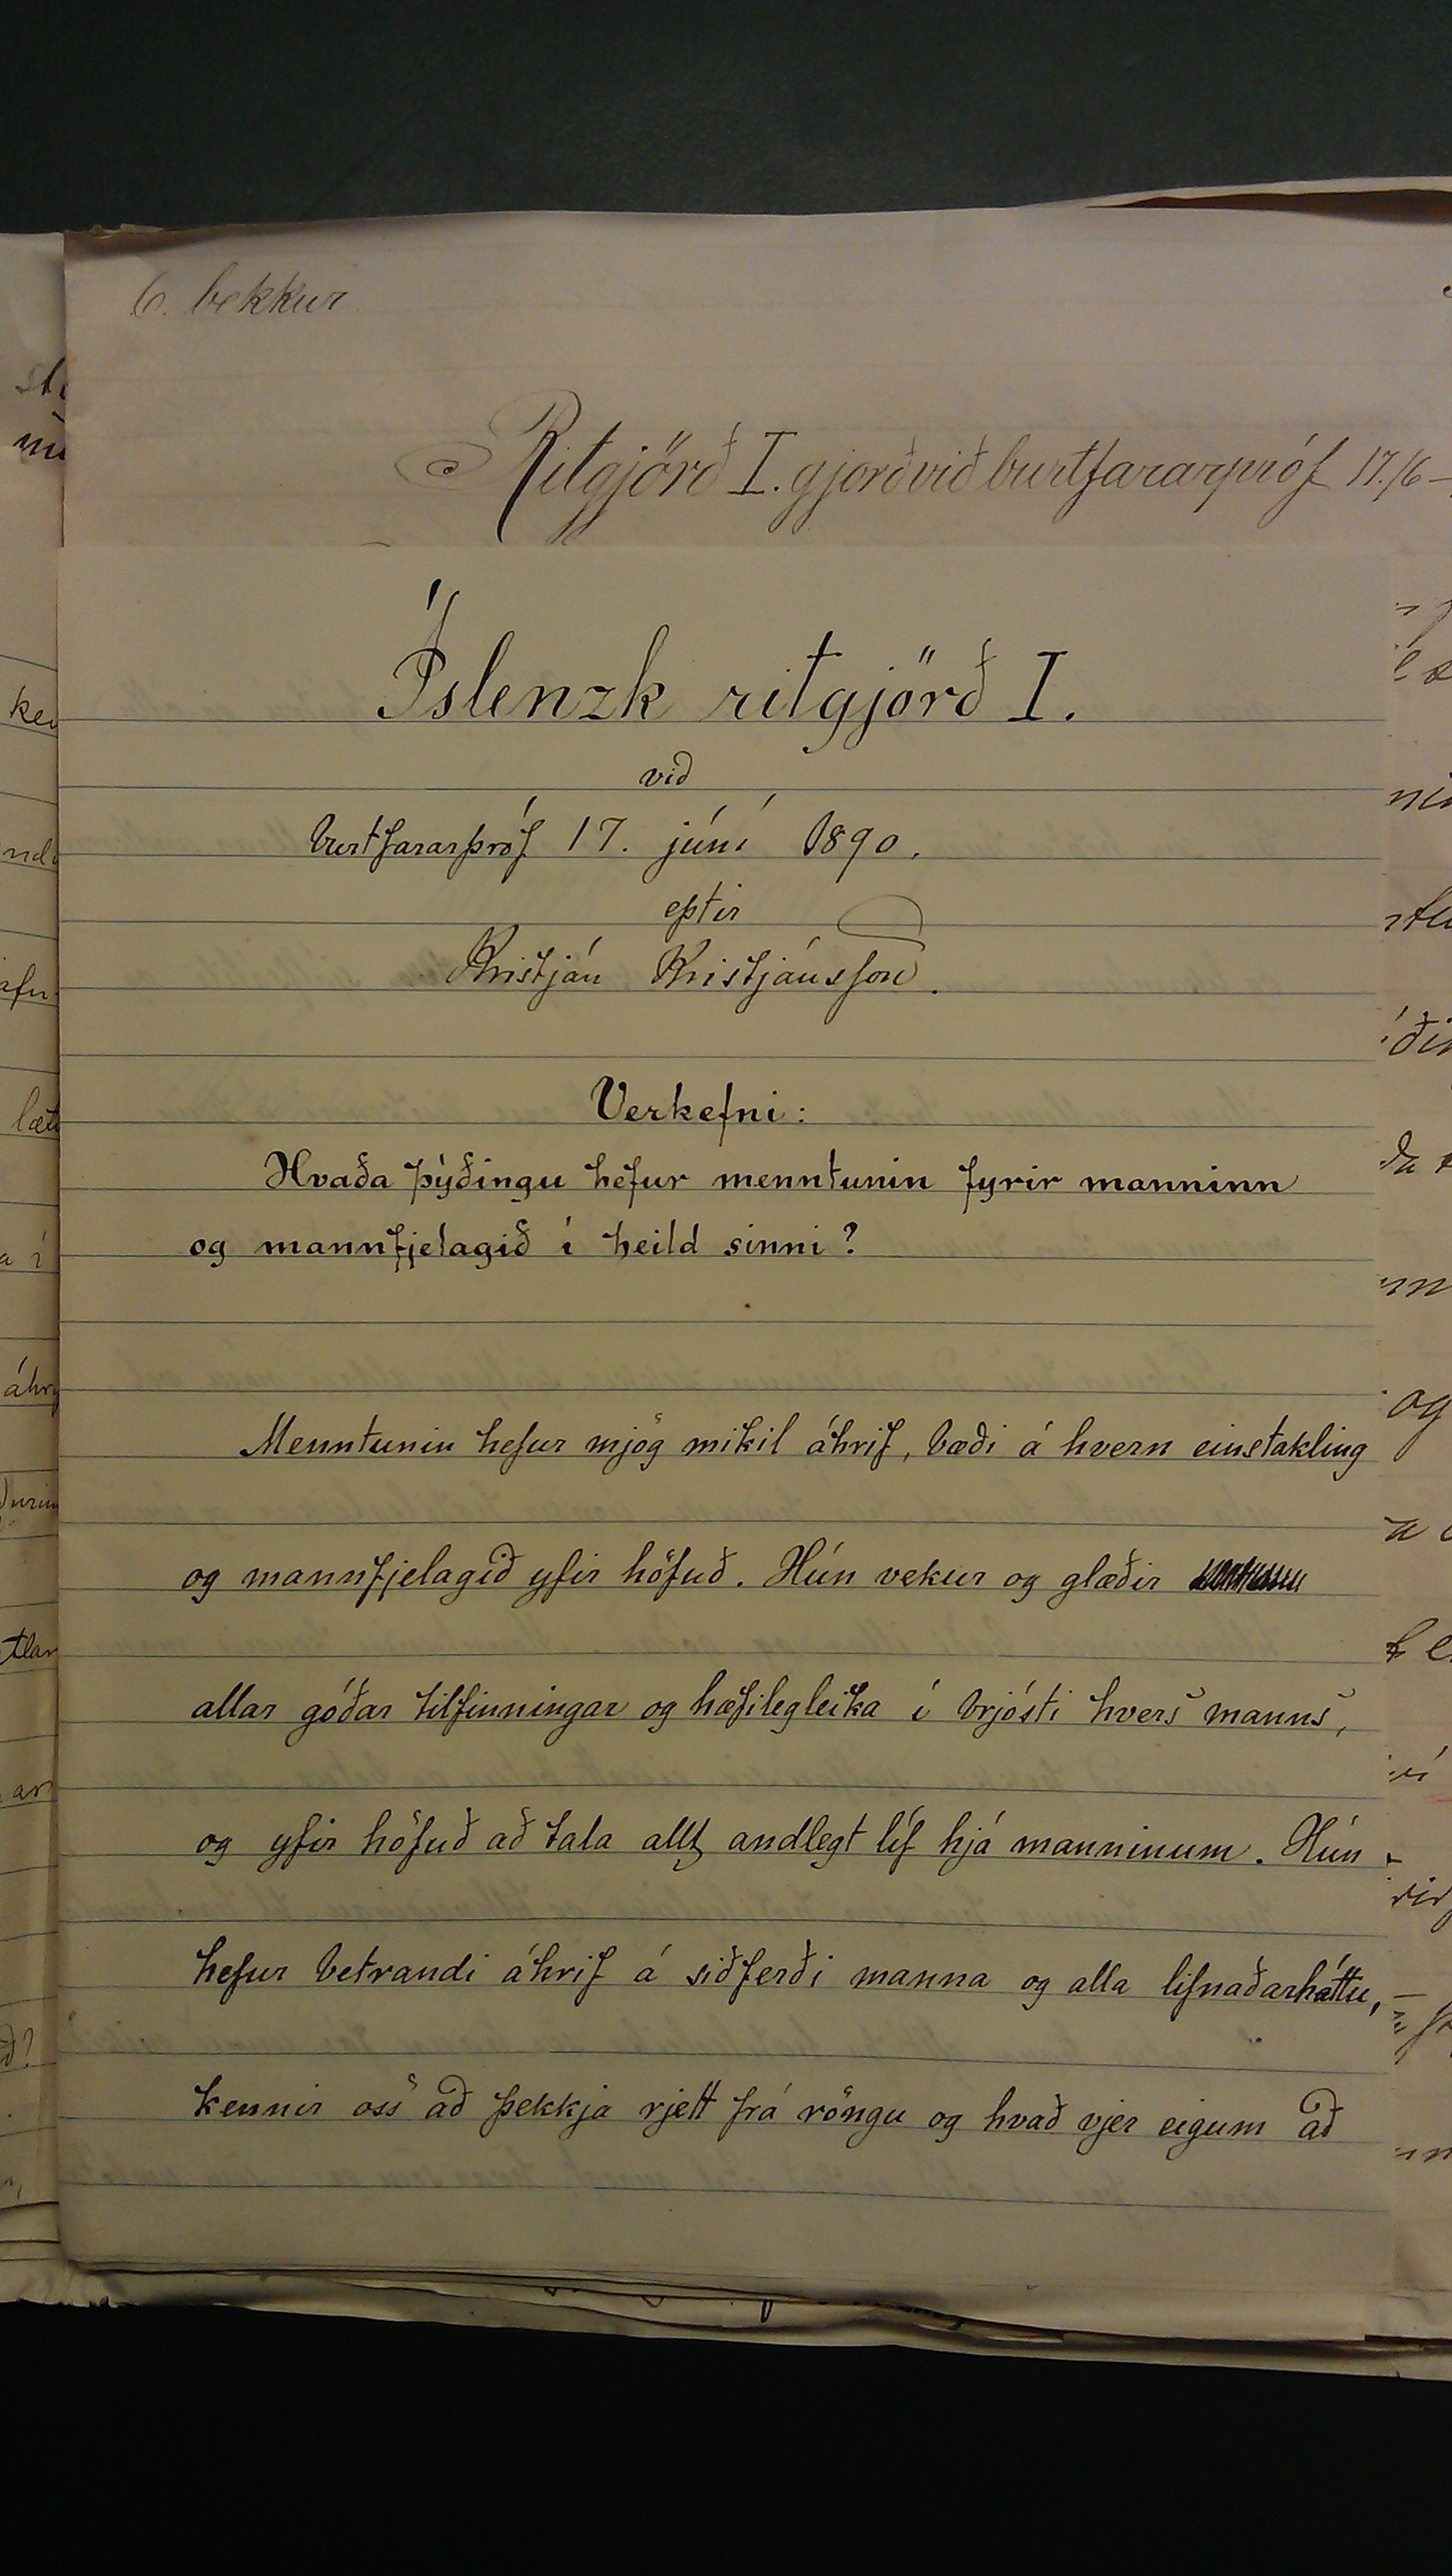 6. bekkur
Ritgjörð I. gjorð við burtfararpróf 17./6 –
Íslenzk ritgjörð I.
við
burtfararpróf 17. júní 1890.
eptir
Kristján Kristjánsson.
Verkefni:
Hvaða þýðingu hefur menntunin fyrir manninn
og mannfjelagið í heild sinni?
Menntunin hefur mjög mikil áhrif, bæði á hvern einstakling
og mannfjelagið yfir höfuð. Hún vekur og glæðir
allar góðar tilfinningar og hæfilegleika í brjósti hvers manns,
og yfir höfuð að tala allt andlegt líf hjá manninum. Hún
hefur betrandi áhrif á siðferði manna og alla lifnaðarháttu,
kennir oss að þekkja rjett frá röngu og hvað vjer eigum að